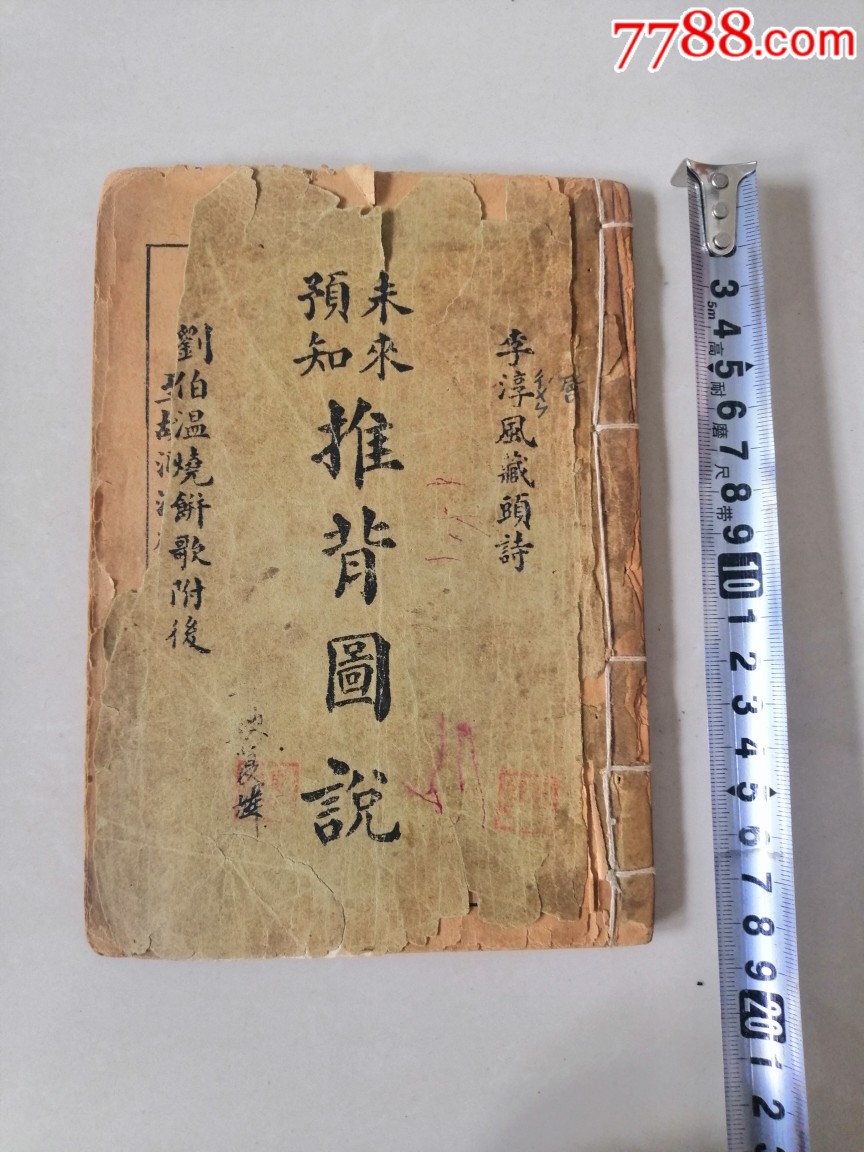 7788.com
李淳風藏頭詩
唐
未來
預知
推背圖說
劉伯溫燒餅歌附後
3 4 5 6 7 8 9 10 1 2 3 4 5 6 7 8 9 20 1 2 3
5m 高耐磨尺带